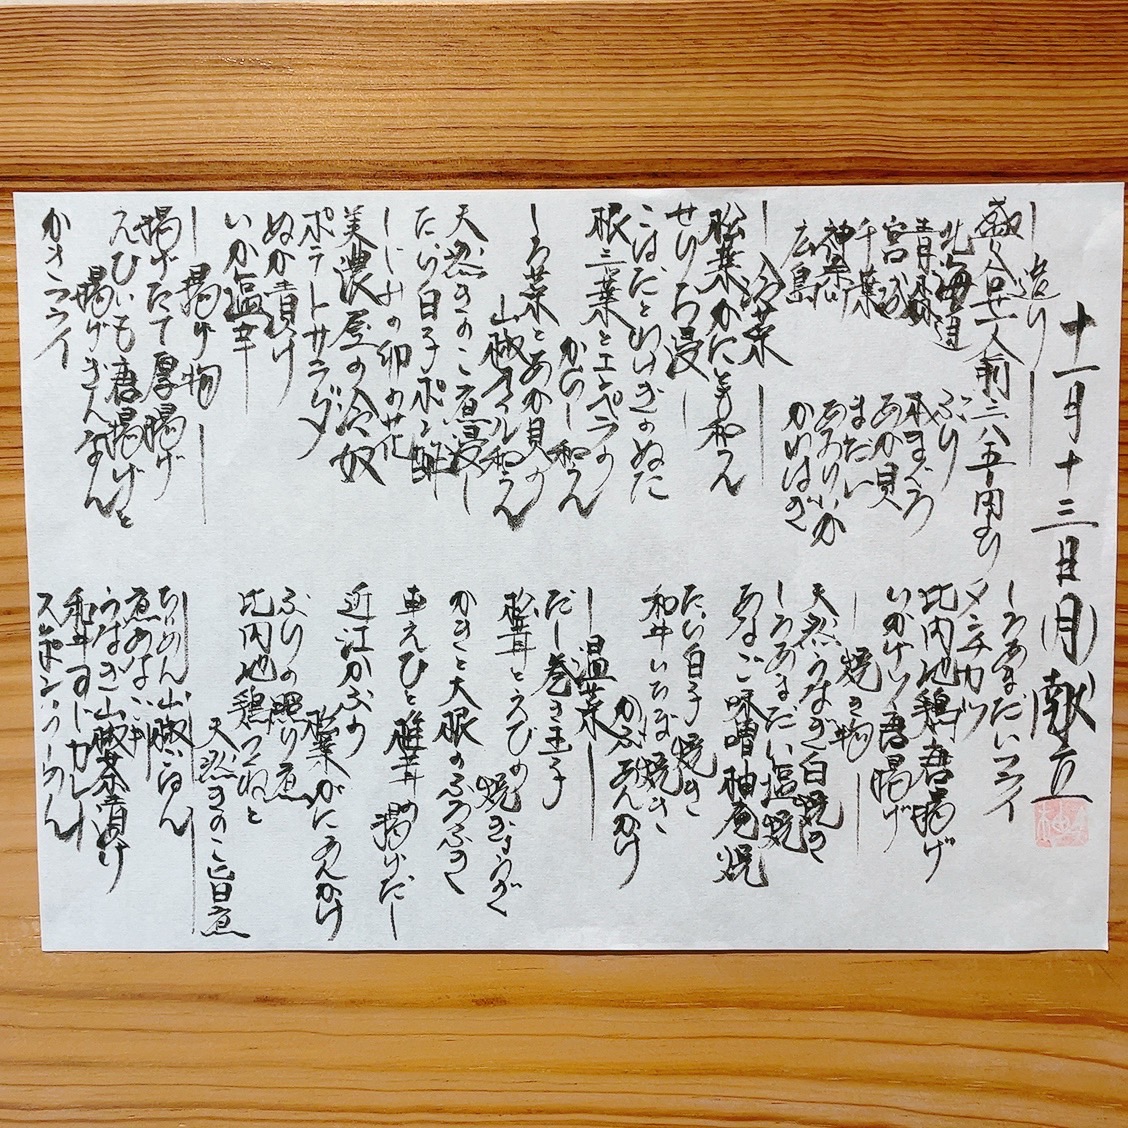 十一月十三日(月)献立
造り
盛合せ一人前二八五十円より
北海道 ぶり
青森 本まぐろ
宮城 あか貝
千葉 まだい
神奈川 あおりいか
広島 かわはぎ
冷菜
松葉かに 和え
せりお浸し
こはだとわけぎのぬた
根三つ葉とエンペラの
からし和え
しろ菜とあか貝の
山椒オイル和え
天然きのこ煮浸し
たい白子ポン酢
しじみの卯の花
美濃屋の冷奴
ポテトサラダ
ぬか漬け
いか塩辛
揚げ物
揚げたて厚揚げ
えびいも唐揚げと
揚げぎんなん
かきフライ
しろあまだいフライ
メンチカツ
比内地鶏唐揚げ
いかげそ唐揚げ
焼き物
天然うなぎ白焼き
しろあまだい塩焼
あなご味噌柚庵焼
たい白子焼き
和牛いちぼ焼き
温菜 かぶあんかけ
だし巻き玉子
松茸とえびの焼きしんじょ
かきと大根のふろふき
車えびと椎茸の揚げだし
近江かぶの
松葉がにあんかけ
ぶりの照り煮
比内地鶏つくねと
天然きのこ旨煮
ちりめん山椒ごはん
煮あなご丼
うなぎ山椒茶漬け
和牛すじカレー
スッポンらーめん